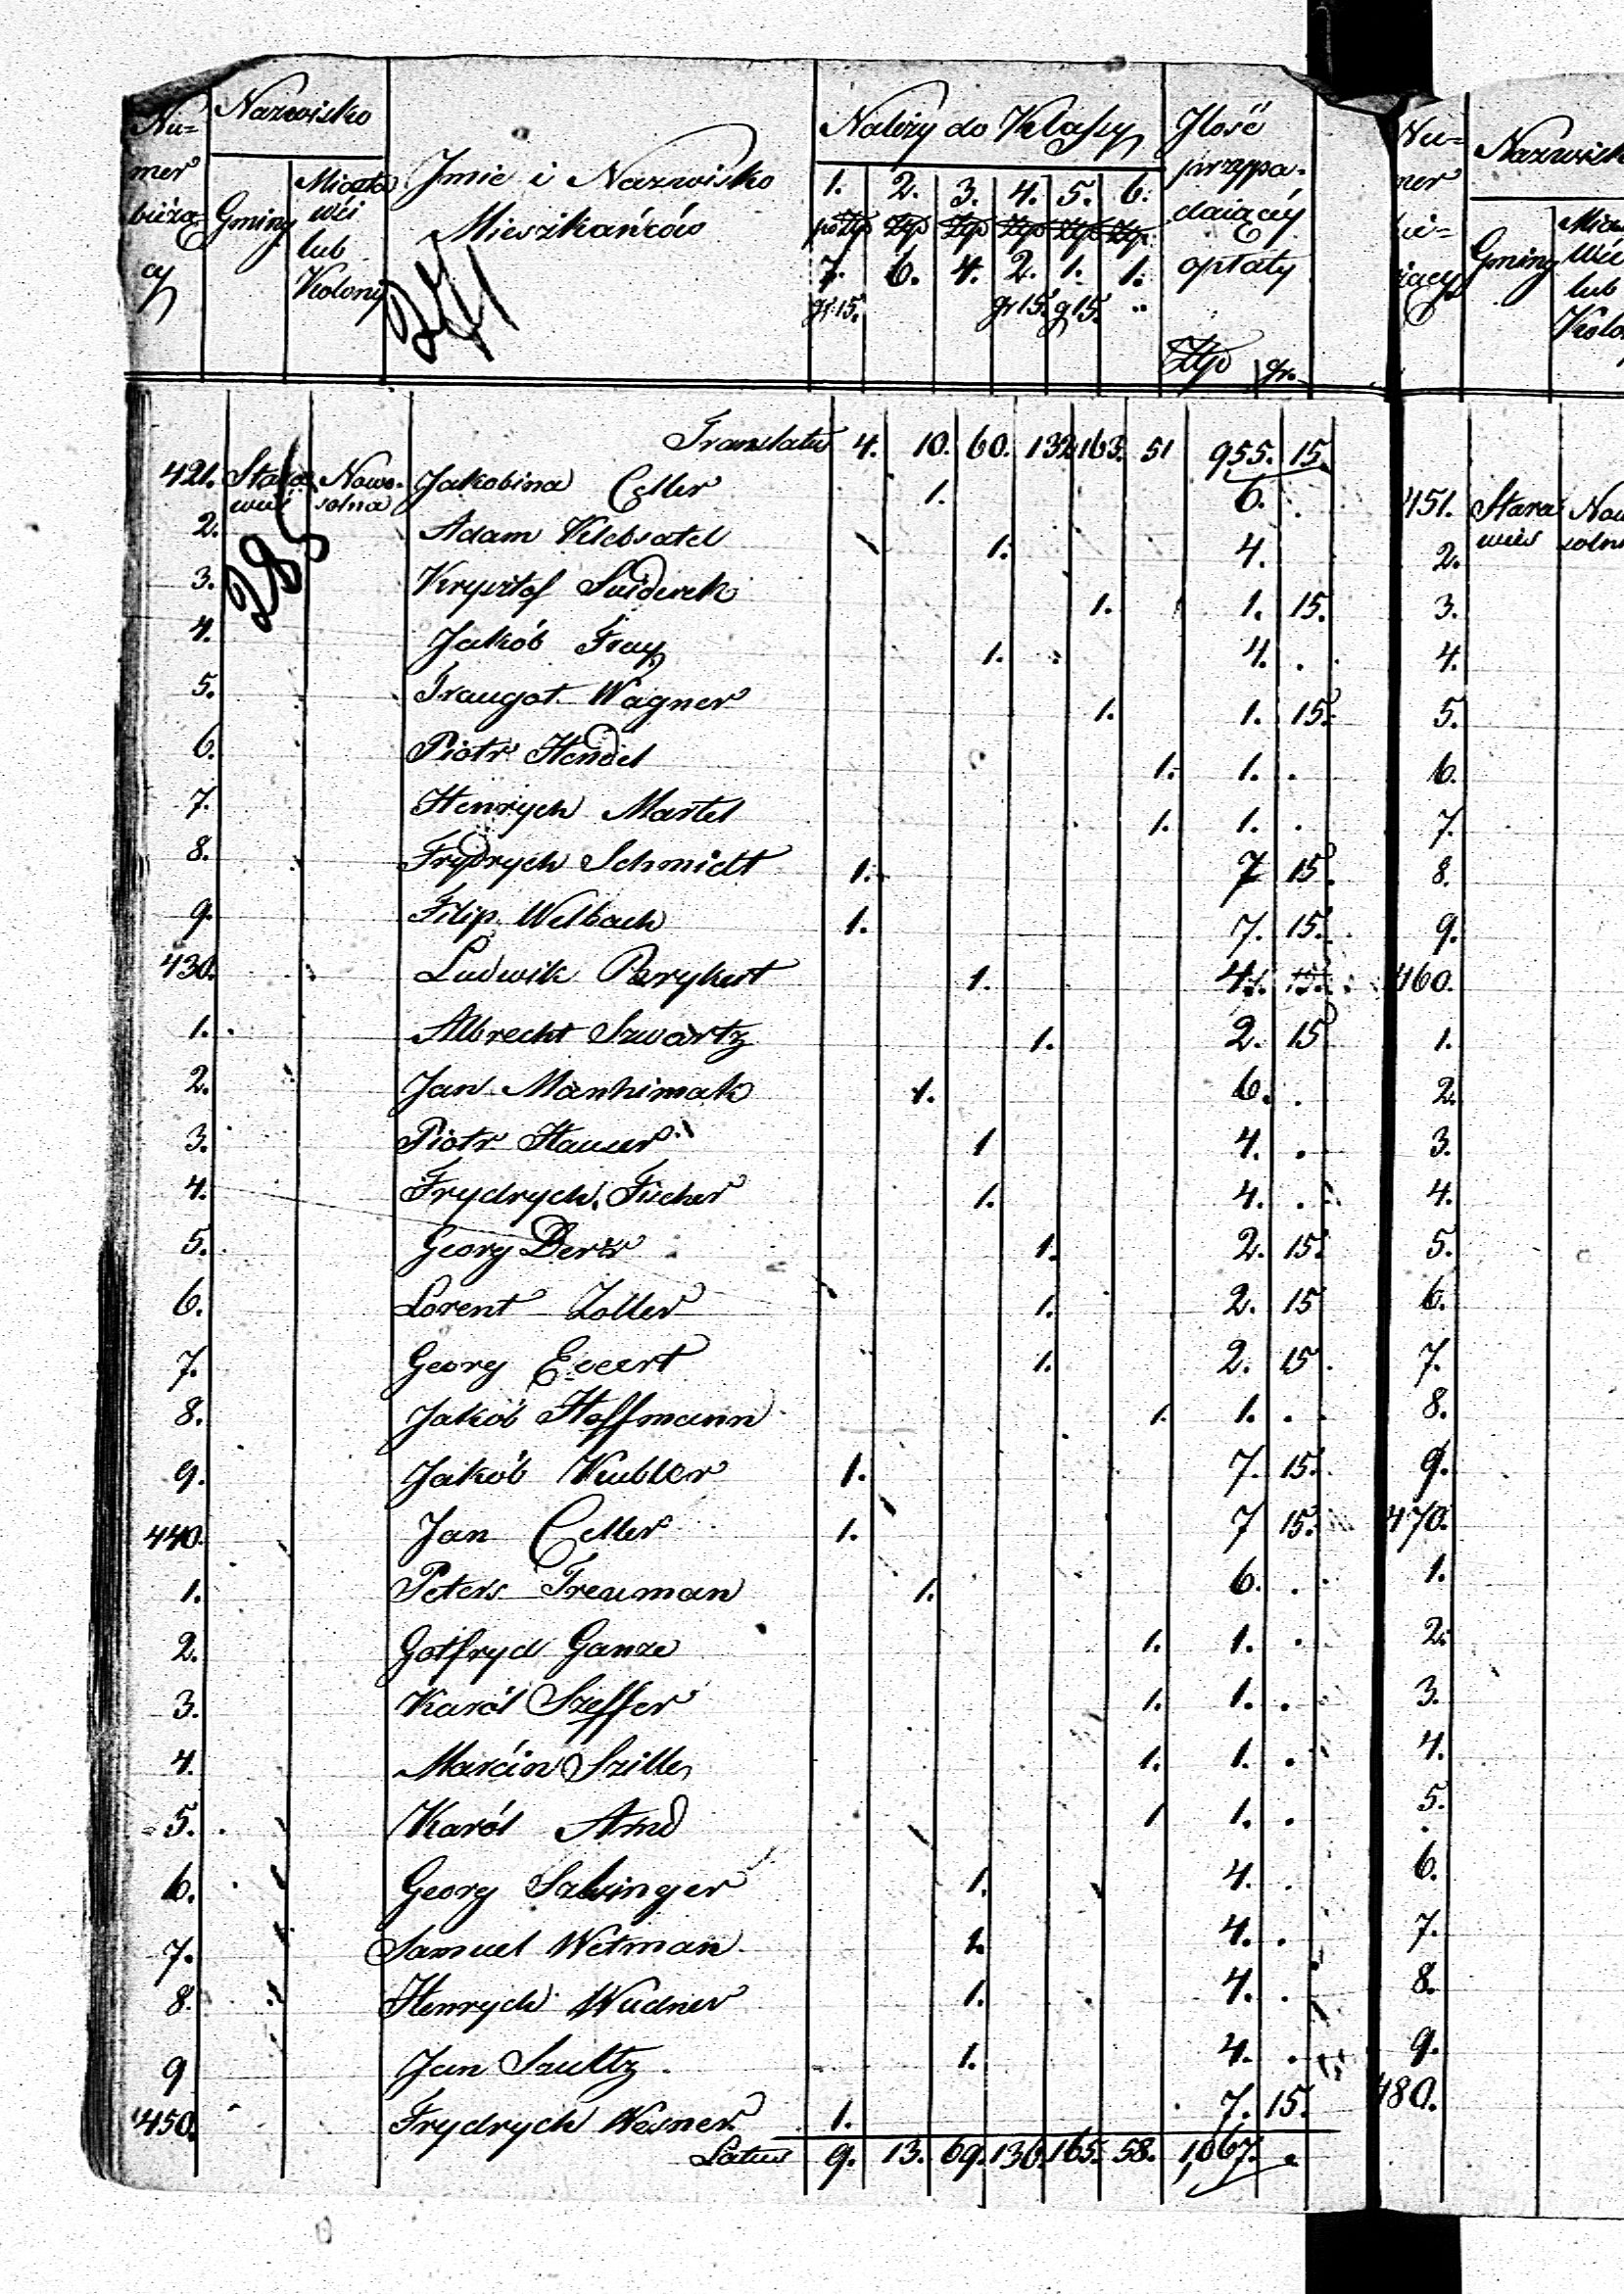 Nu=
mer
bieżą=
cy
Nazwisko
Gminy
Miasta
wśi
lub
Kolony
Jmie i Nazwisko
Mieszkańców
241
Należy do Klassy
1. 2. 3. 4. 5. 6.
po Złp Złp Złp Złp Złp Złp
7. 6. 4. 2. 1. 1.
gr 15. gr 15. g 15. "
Jlość
przypa-
daiącéy
opłaty
Złp gr.
Translatus 4. 10. 60. 132 163. 51 955. 15.
421. Stara Nowo- Jakobina Celler 1. 6. .
wieś solna
285
2. Adam Klebsatel 1. 4.
3. Krysztof Suiderek 1. 1. 15.
4. Jakób Fray 1. 4. .
5. Traugot Wagner 1. 1. 15.
6. Piotr Hendel 1. 1. .
7. Henrych Martel 1. 1. .
8. Frydrych Schmidt 1. 7 15.
9. Filip Welbach 1. 7. 15.
430. Ludwik 1. 4. 15.
1. Albrecht Szwartz 1. 2. 15
2. Jan Manhimak 1. 6. .
3. Piotr Hauser 1 4. .
4. Frydrych Fischer 1. 4. .
5. Georg 1. 2. 15.
6. Lorent Zoller 1. 2. 15
7. Georg Evert 1. 2. 15.
8. Jakób Hoffmann 1. 1. .
9. Jakób Kubler 1. 7. 15.
440. Jan Celler 1. 7 15.
1. Peters Treuman 1. 6. .
2. Gotfryd Ganze 1. 1. .
3. Karól Szeffer 1. 1. .
4. Marcin Sziller 1. 1. .
5. Karól Arnd 1 1. .
6. Georg Szlwinger 1. 4. .
7. Samuel Witman 1. 4. .
8. Henrych Wudner 1. 4. .
9 Jan Szultz 1. 4. .
450. Frydrych Wesner 1. 7. 15.
Latus 9. 13. 69. 136. 165. 58. 1,067. .
Nu=
mer
bie=
żący
Gminy
lub
451. Stara
wieś
2.
3.
4.
5.
6.
7.
8.
9.
460.
1.
2.
3.
4.
5.
6.
7.
8.
9.
470.
1.
2.
3.
4.
5.
6.
7.
8.
9.
480.